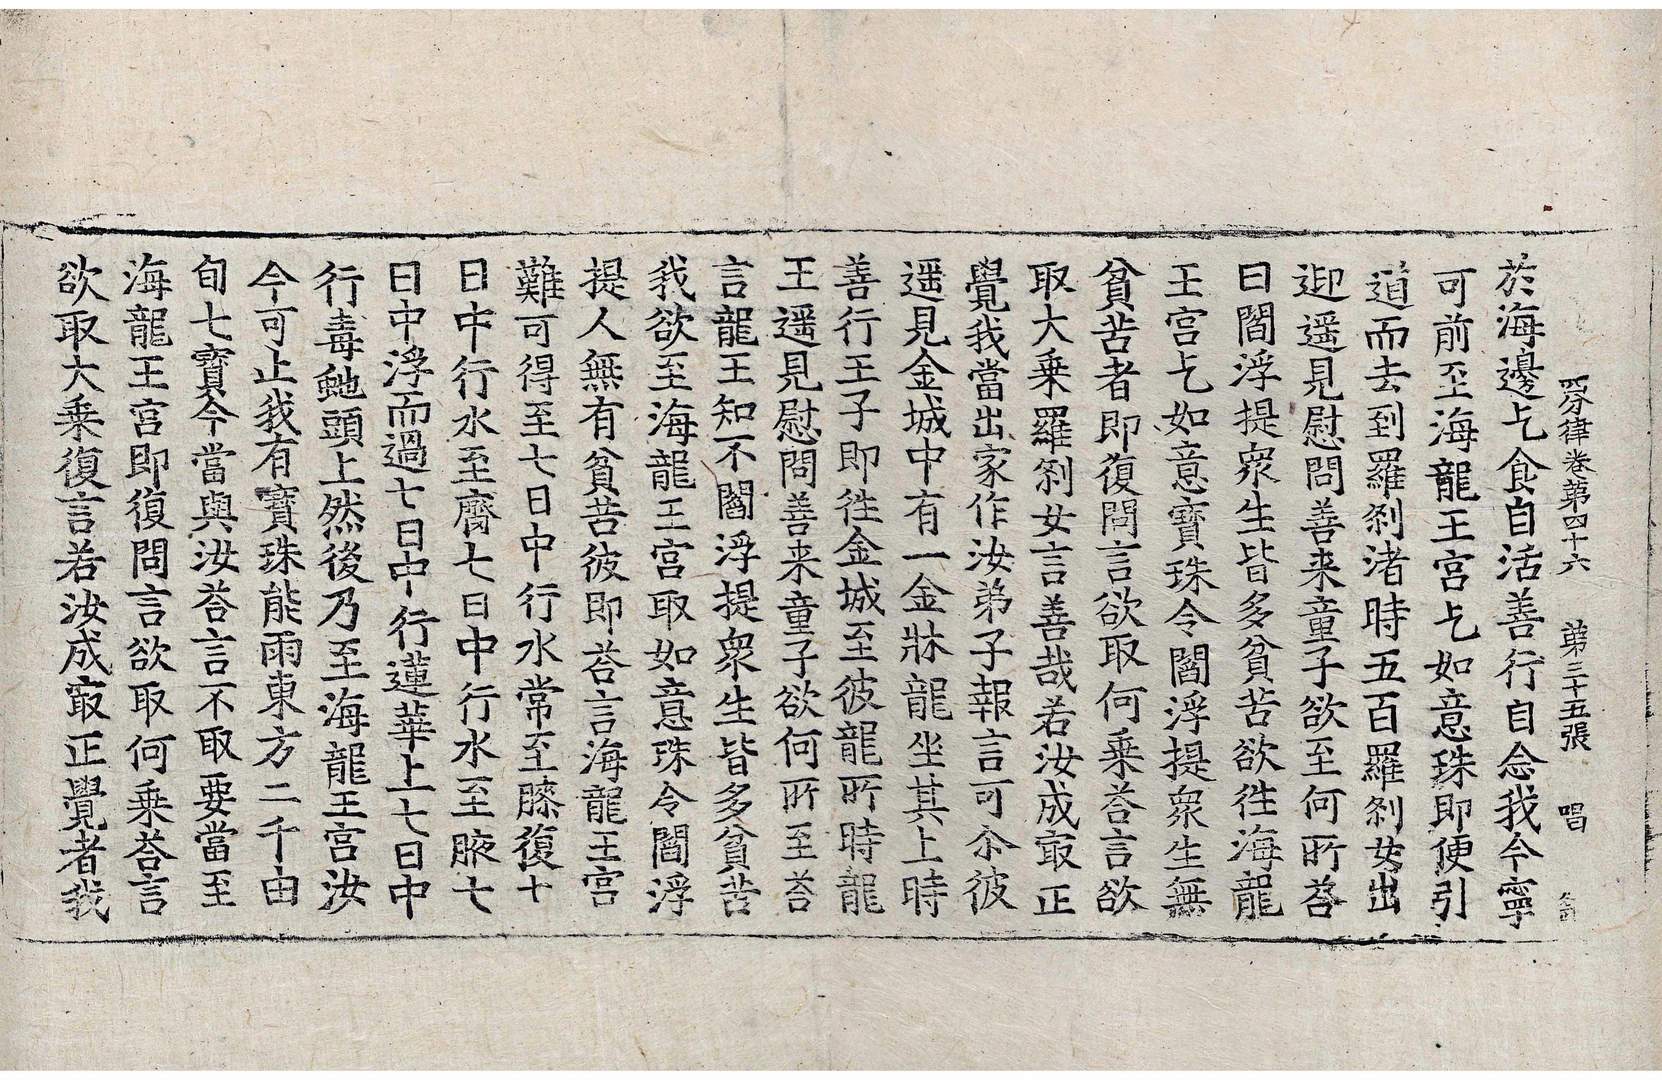 四分律卷第四十六 第三十五張 唱
於海邊乞食自活善行自念我今寧
可前至海龍王宮乞如意珠即便引
道而去到羅刹渚時五百羅刹女出
迎遥見慰問善来童子欲至何所荅
曰閻浮提衆生皆多貧苦欲徃海龍
王宮乞如意寶珠令閻浮提衆生無
貧苦者即復問言欲取何乗荅言欲
取大乗羅刹女言善哉若汝成冣正
覺我當出家作汝弟子報言可尒彼
遥見金城中有一金牀龍坐其上時
善行王子即徃金城至彼龍所時龍
王遥見慰問善来童子欲何所至荅
言龍王知不閻浮提衆生皆多貧苦
我欲至海龍王宮取如意珠令閻浮
提人無有貧苦彼即荅言海龍王宮
難可得至七日中行水常至膝復十
日中行水至齊七日中行水至腋七
日中浮而過七日中行蓮華上七日中
行毒虵頭上然後乃至海龍王宮汝
今可止我有寶珠能雨東方二千由
旬七寶今當與汝荅言不取要當至
海龍王宮即復問言欲取何乗荅言
欲取大乗復言若汝成冣正覺者我